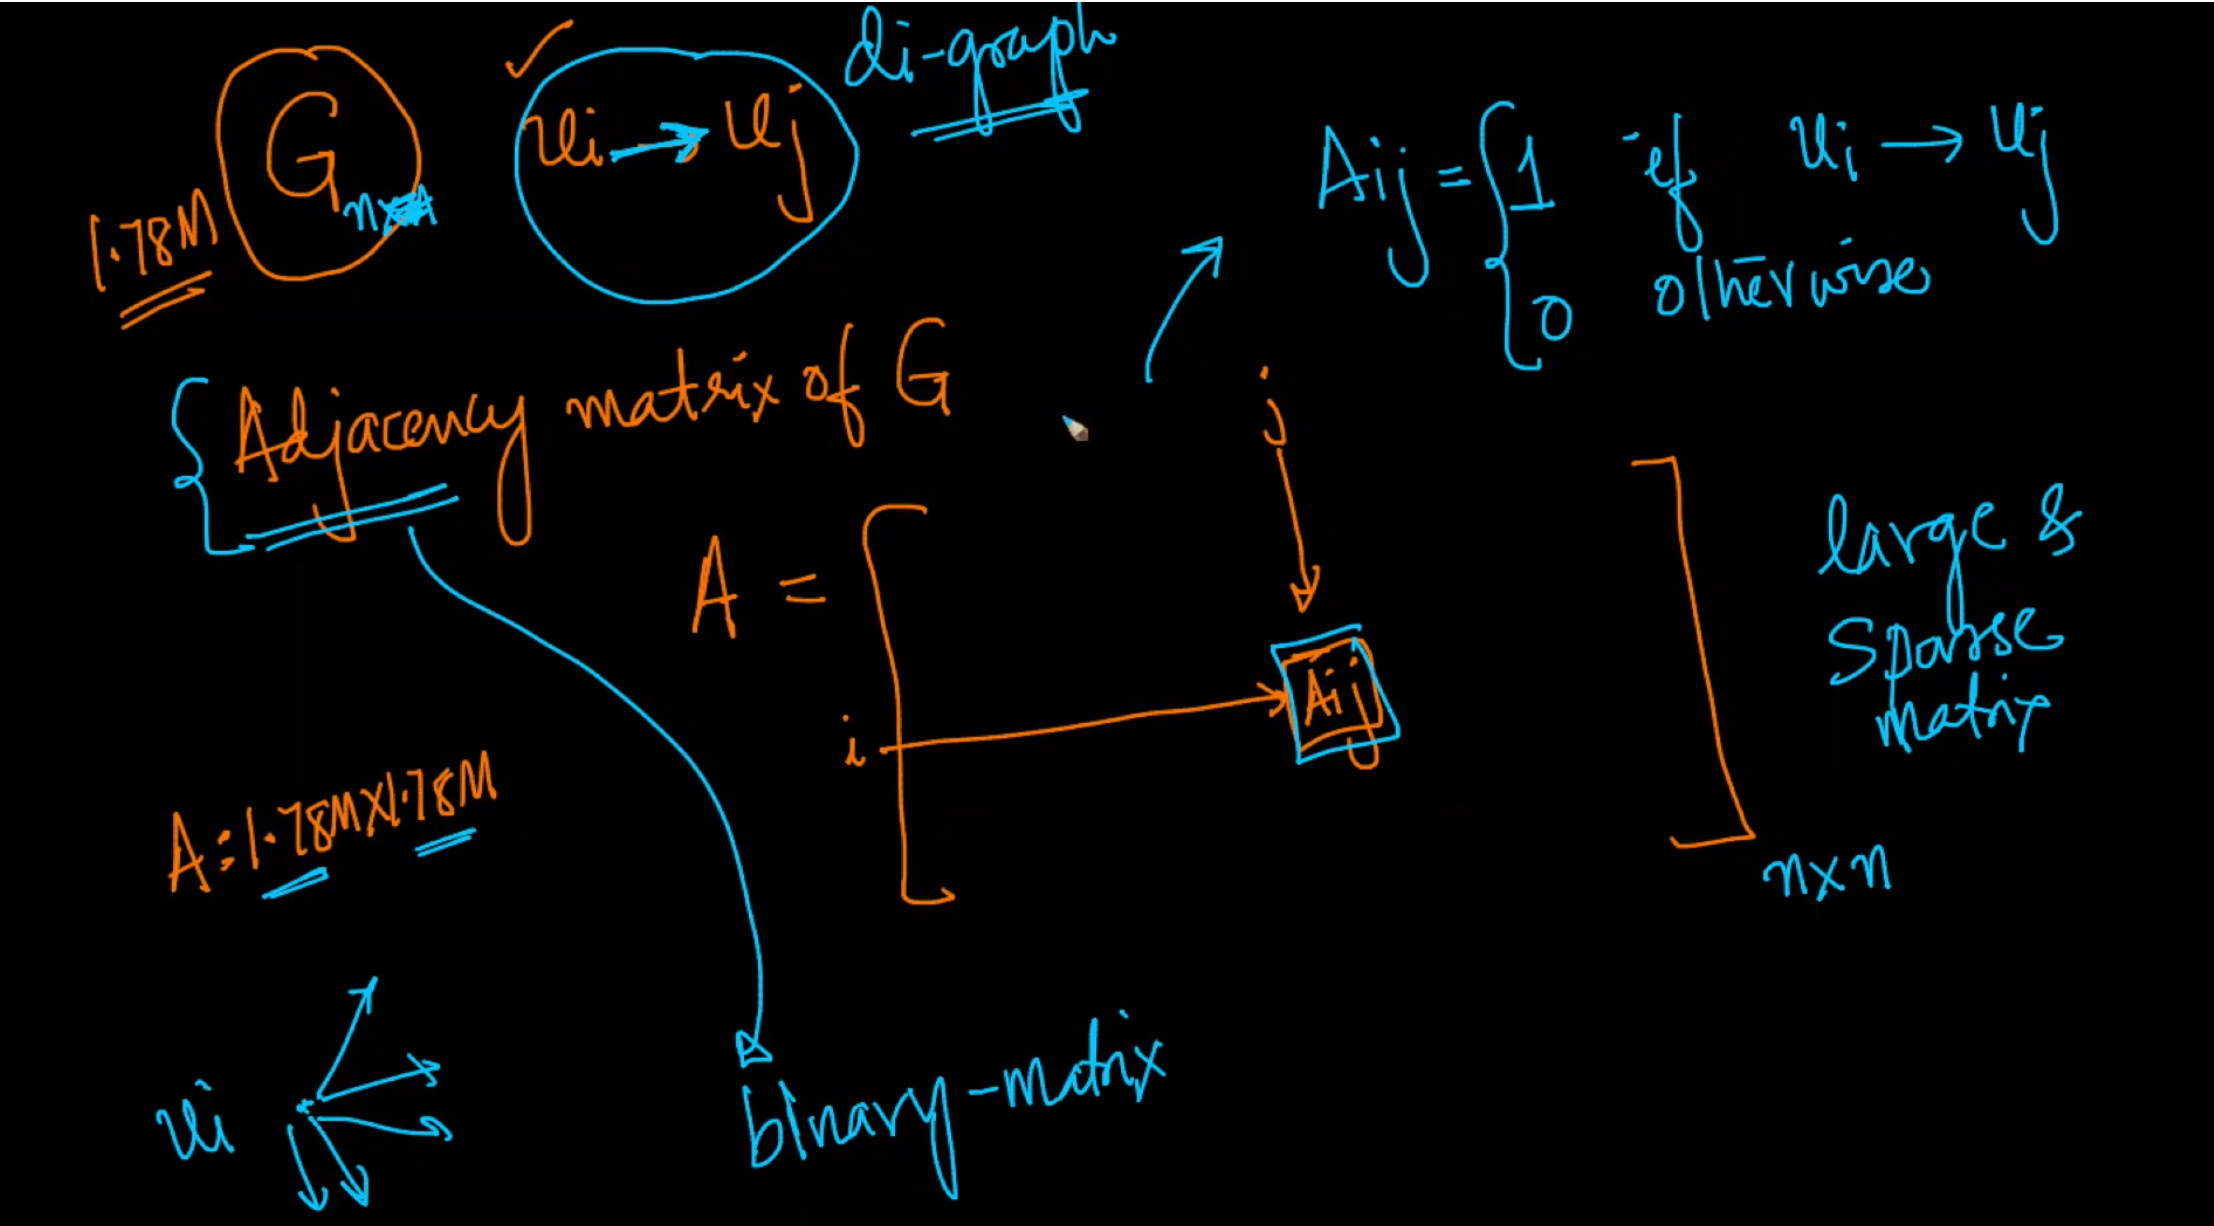 di-graph
G n
ui → uj
1.78M
Aij = { 1 if ui → uj
0 otherwise
Adjacency matrix of G
j
A = [ Aij ] n×n
i
large &
Sparse
matrix
A: 1.78M×1.78M
ui
binary-matrix